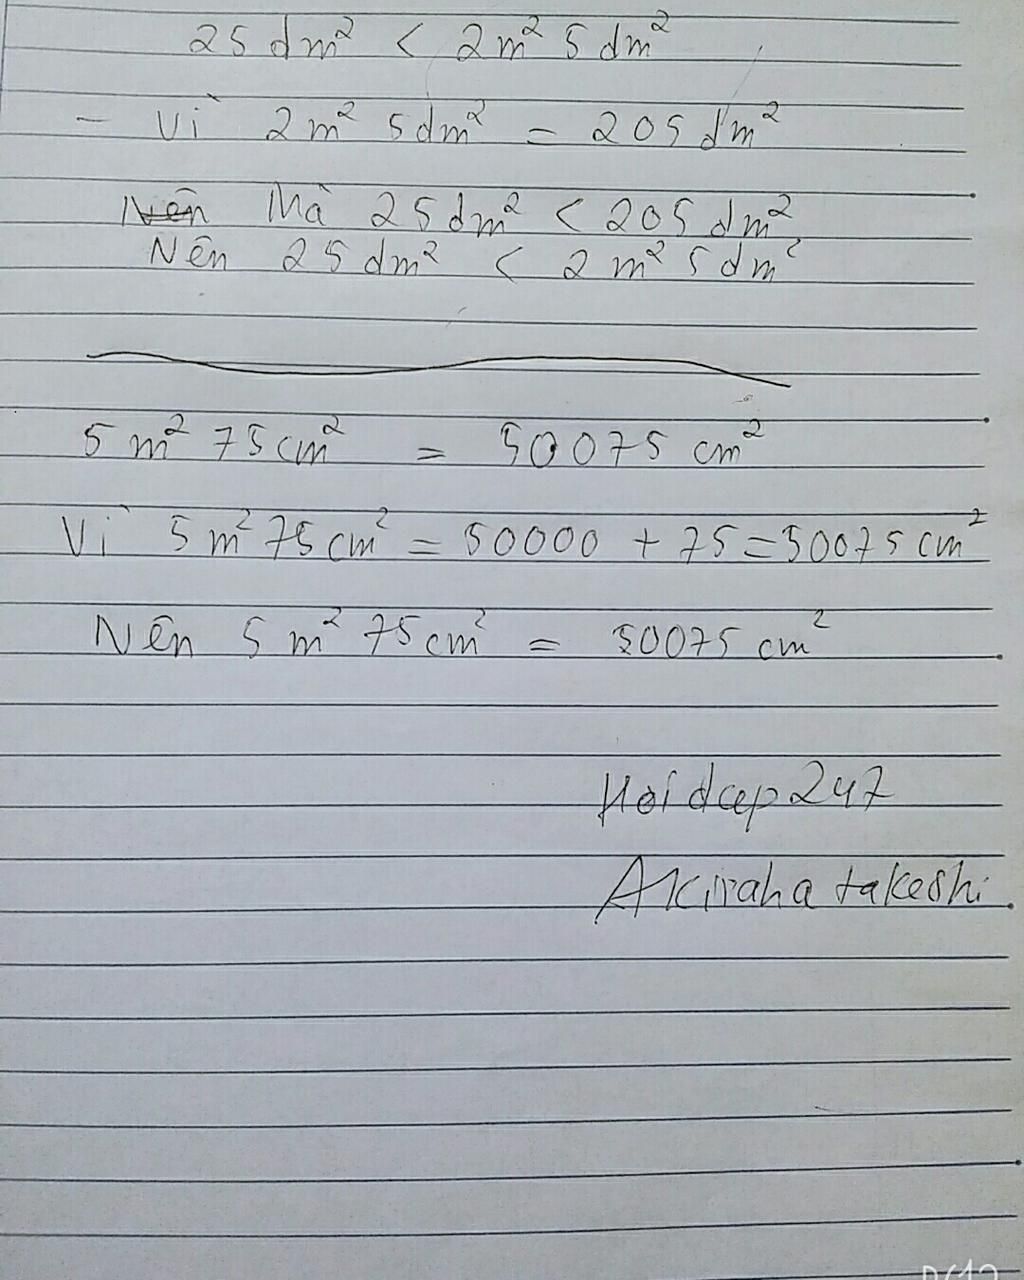 25 dm² < 2m² 5 dm²
- Vì 2m² 5dm² = 205 dm²
Nên Mà 25dm² < 205 dm²
Nên 25 dm² < 2 m² 5 dm²
5 m² 75 cm² = 50075 cm²
Vì 5 m² 75 cm² = 50000 + 75 = 50075 cm²
Nên 5 m² 75 cm² = 50075 cm²
Hoidap247
Akiraha takeshi